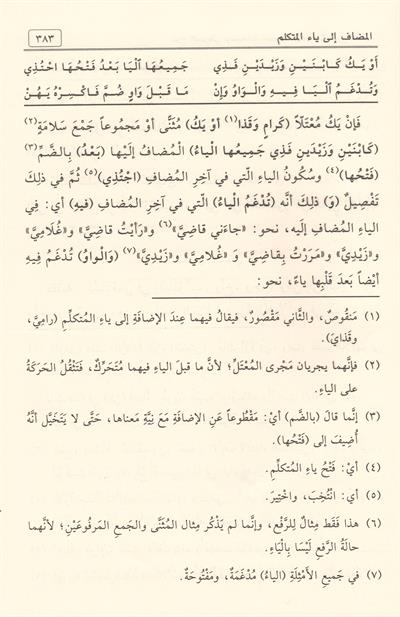 المضاف إلى ياء المتكلم
٣٨٣
أَوْ يَكُ كَابْنَيْنِ وَزَيْدَيْنِ فَذِي جَمِيعُهَا الْيَا بَعْدُ فَتْحُهَا احْتُذِي
وَتُدْغَمُ الْيَا فِيهِ وَالْوَاوُ وَإِنْ مَا قَبْلَ وَاوٍ ضُمَّ فَاكْسِرْهُ يَهُنْ
فَإِنْ يَكُ مُعْتَلًّا (كَرامٍ وَقَذا)(١) أَوْ يَكُ) مُثَنًّى أَوْ مَجْمُوعاً جَمْعَ سَلامَةٍ(٢)
(كَابْنَيْنِ وَزَيْدِينِ فَذِي جَمِيعُها الْياءُ) المُضافُ إِلَيْها (بَعْدُ) بِالضَّمِّ(٣)
(فَتْحُها)(٤) وسُكُونُ الياءِ الّتي في آخِرِ المُضافِ (احْتُذِي)(٥) ثُمَّ في ذلِكَ
تَفْصِيلٌ (وَ) ذلك أَنَّه (تُدْغَمُ الْياءُ) الّتي في آخِرِ المُضافِ (فيهِ) أي: فِي
الياءِ المُضافِ إلَيه، نحو: «جاءَني قاضِيَّ»(٦) و«رَأيْتُ قاضِيَّ» و«غُلامَيَّ»
و«زَيْدِيَّ» و«مَرَرْتُ بِقاضِيَّ» وَ «غُلامَيَّ» و«زَيْدِيَّ»(٧) (وَالواوُ) تُدْغَمُ فِيهِ
أيْضاً بَعدَ قَلْبِها ياءً، نحو:
(١) مَنقُوصٌ، والثّاني مَقْصُورٌ، فيقالُ فيهما عِندَ الإضافَةِ إلى ياءِ المُتكلِّمِ (رامِيَّ،
وقَذايَ).
(٢) فإنَّهما يجريان مَجْرى المُعْتَلِّ؛ لأنَّ ما قبلَ الياءِ فيهما مُتَحَرِّكٌ، فَتَثْقُلُ الحَرَكَةُ
على الياءِ.
(٣) إنَّما قالَ (بالضَّم) أيْ: مَقْطُوعاً عَنِ الإضافَةِ مَعَ نِيَّةِ مَعناها، حَتّى لا يَتَخَيَّلَ أنَّهُ
أُضِيفَ إلى (فَتْحُها).
(٤) أيْ: فَتْحُ ياءِ المُتكلِّمِ.
(٥) أيْ: انْتُخِبَ، واخْتِيرَ.
(٦) هذا فَقَط مِثالٌ للرَّفْعِ، وإنَّما لم يَذْكُر مِثال المُثَنَّى والجَمعِ المَرفُوعَيْنِ؛ لأنَّهما
حالَةُ الرَّفعِ لَيْسَا بِالْيَاءِ.
(٧) في جَميعِ الأمْثِلَةِ (الياءُ) مُدْغَمَةٌ، ومَفْتُوحَةٌ.